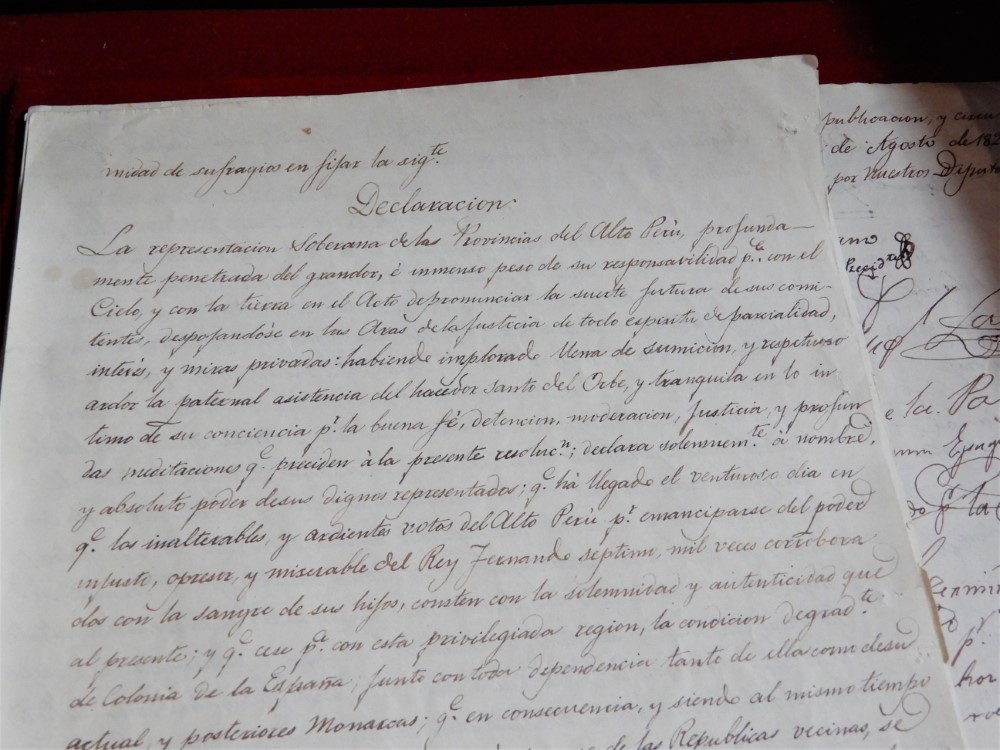 nidad de sufragios en fijar la sigte.
Declaracion.
La representacion Soberana de las Provincias del Alto Perù, profunda—
mente penetrada del grandor, é inmenso peso de su responsavilidad pa. con el
Cielo, y con la tierra en el Acto de pronunciar la suerte futura de sus comi-
tentes, despojandóse en las Aras de la Justicia de todo espiritu de parcialidad,
interés, y miras privadas: habiendo implorado llena de sumicion, y respetuoso
ardor la paternal asistencia del hacedor Santo del Orbe, y tranquila en lo in
timo de su conciencia pr. la buena fé, detencion, moderacion, Justicia, y profun
das meditaciones qe. preciden à la presente resolucn.; declara solemnemte. à nombre,
y absoluto poder de sus dignos representados; qe. há llegado el venturoso dia en
qe. los inalterables, y ardientes votos del Alto Perù pr. emanciparse del poder
injusto, opresor, y miserable del Rey Fernando septimo, mil veces corrobora
dos con la sangre de sus hijos, consten con la solemnidad y autenticidad que
al presente; y qe. cese pa. con esta privilegiada region, la condicion degradte.
de Colonia de la España, junto con toda dependencia tanto de ella como de su
actual, y posteriores Monarcas; qe. en consecuencia, y siendo al mismo tiempo
de las Republicas vecinas, se
publicacion, y circu
de Agosto de 182
por nuestros Diputa
Presidte
e la Pa